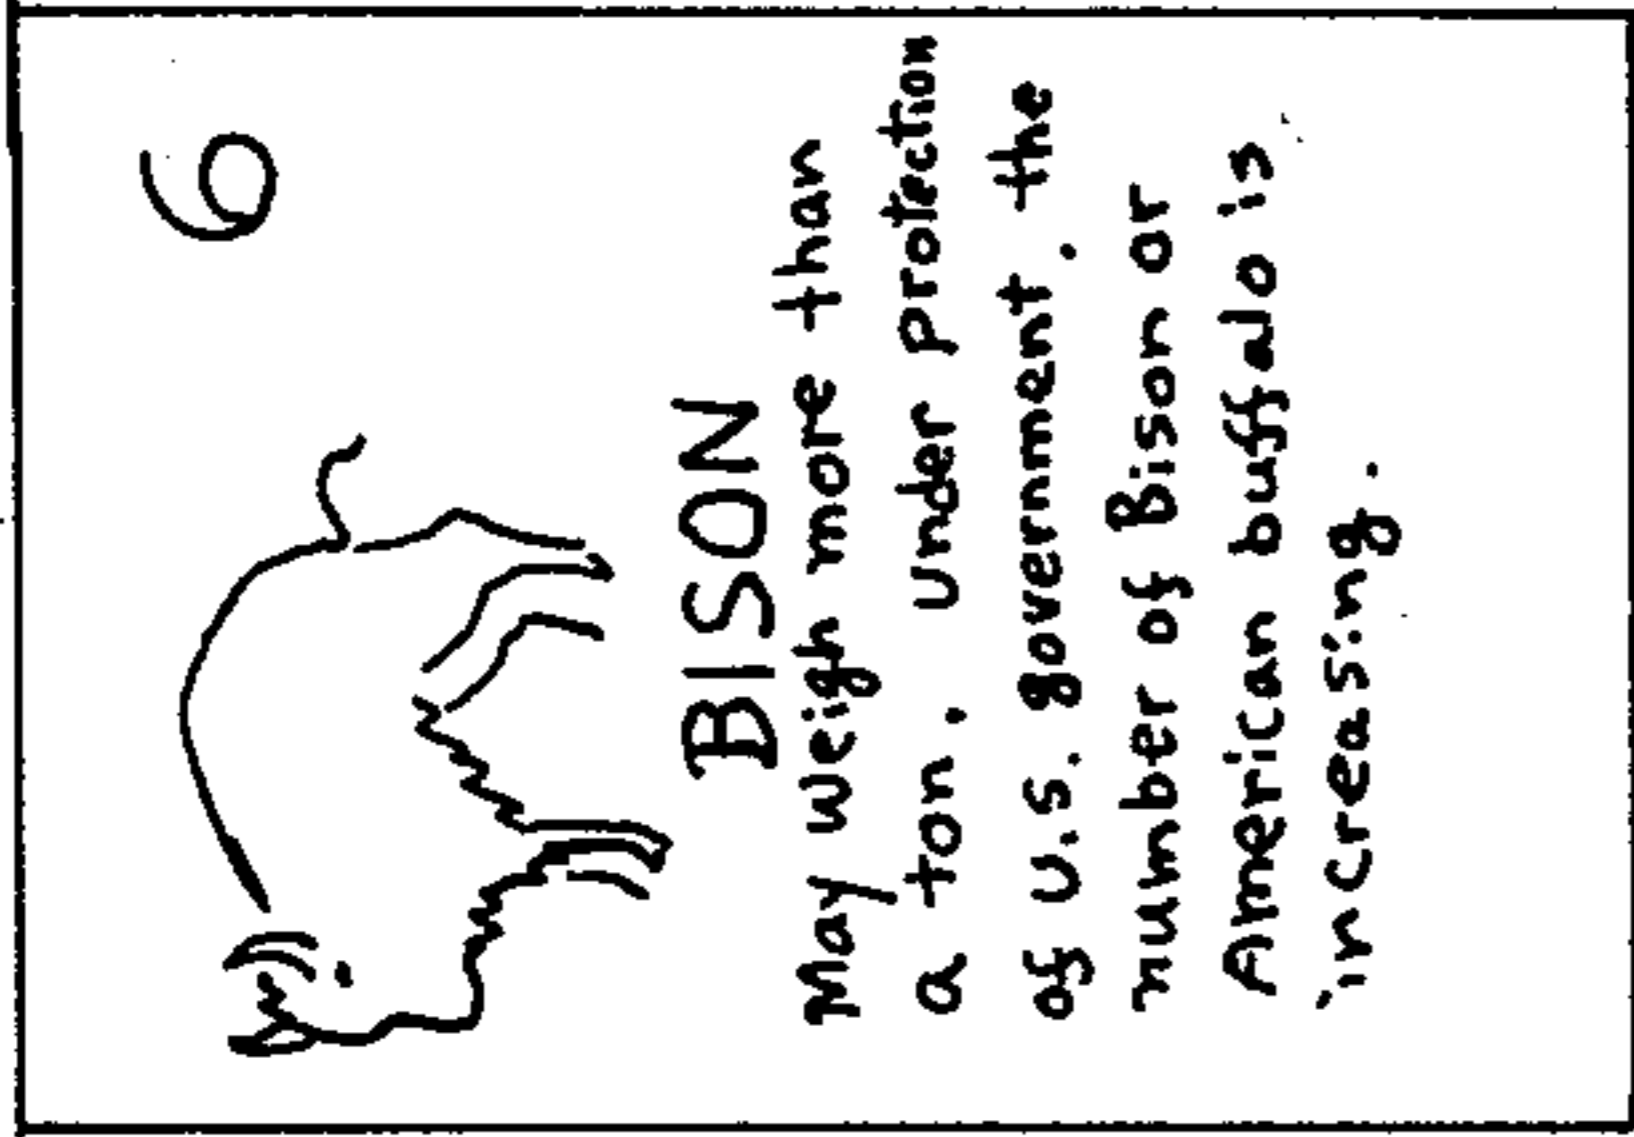 6
BISON
May weigh more than
a ton. Under protection
of U.S. government, the
number of Bison or
American buffalo is
increasing.